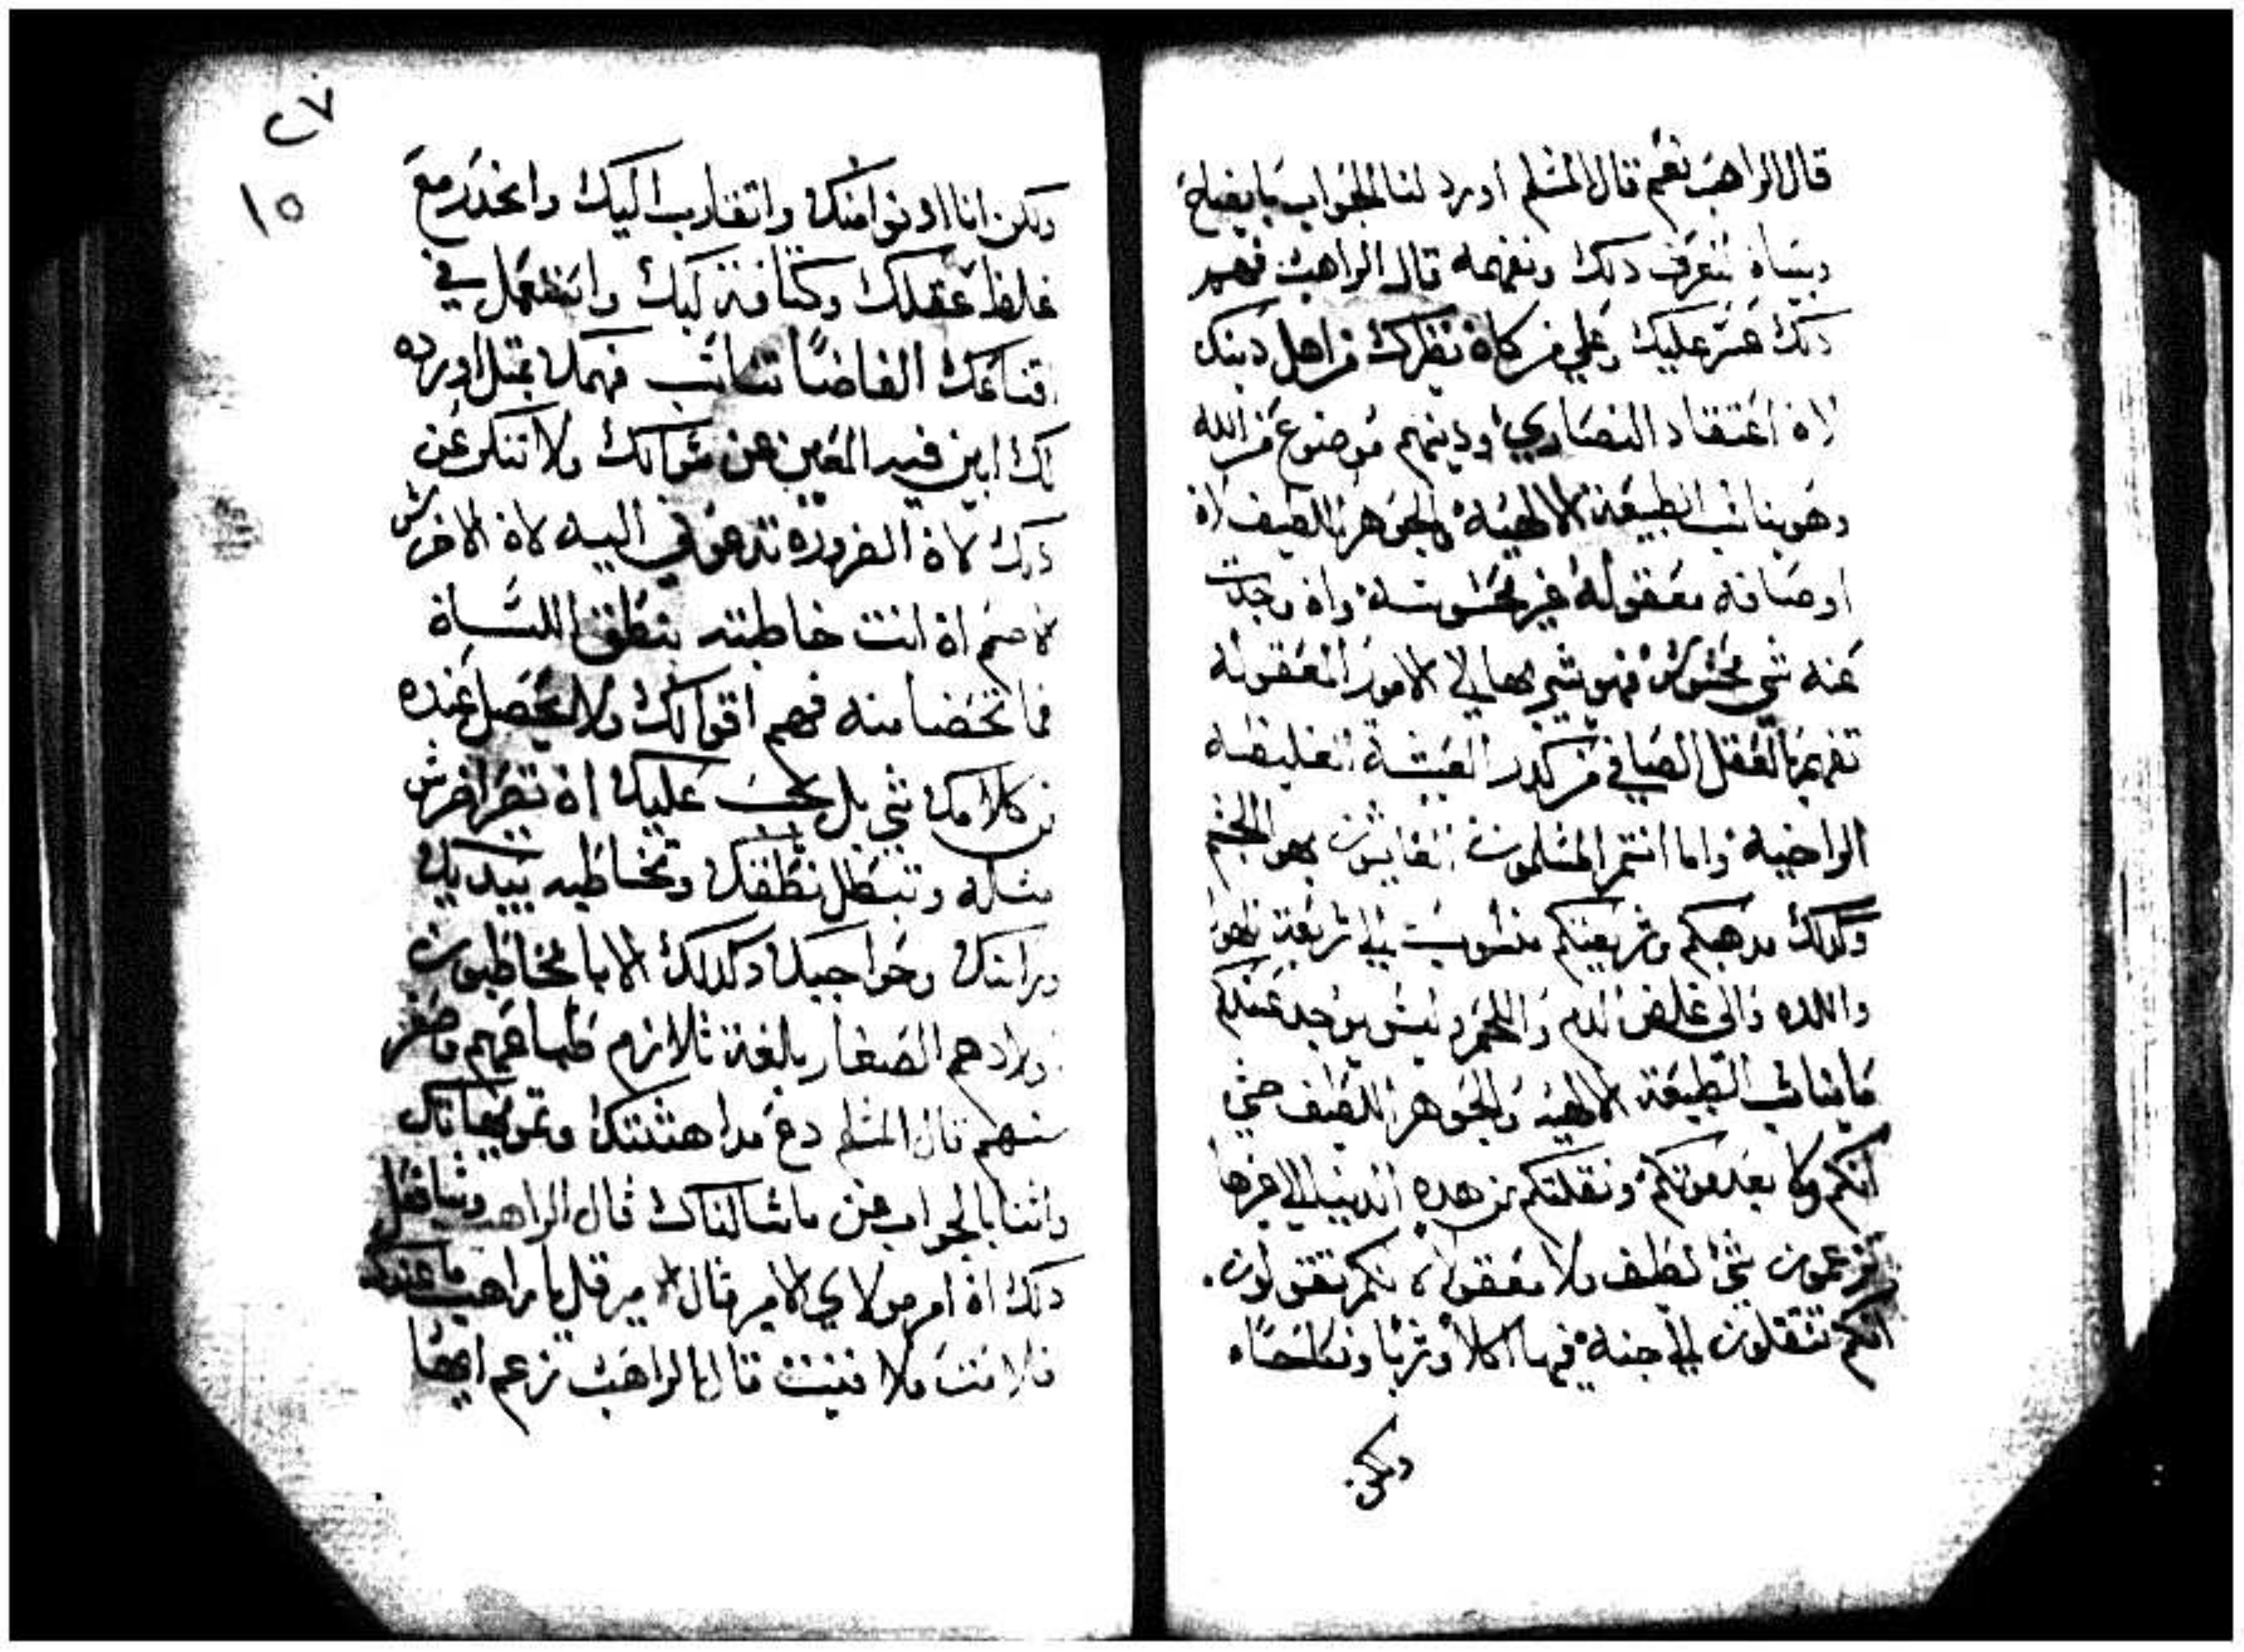 قال الراهب نعم قال المسلم اورد لنا الجواب بايضاح
وبيان لنعرف دلك ونفهمه قال الراهب فهم
دلك عسر عليك وعلي من كان نظيرك من اهل دينك
لان اعتقاد النصاري ودينهم موضوع من الله
وهو يناسب الطبيعة الالهية والجوهر اللطيف لان
اوصافه معقولة غير محسوسة وان وجدت
عنه شي محسوس فهو يشير بها الي الامور المعقولة
تفهم بالعقل الصافي من كدر العيشة الغليظة
الراخية واما انتم المسلمون الغايبون بهوا الجسم
وكدلك مدهبكم وشريعتكم منسوبة الي شريعة الهوا
واللده والي غلض الدم واللحم وليس يوجد عندكم
ما يناسب الطبيعة الالهية والجوهر اللطيف حتي
انكم ولا بعد موتكم ونقلتكم من هده الدنيا الي الاخرة
تزعمون شي لطيف ولا معقول لانكم تقولون
انكم تنتقلون الي جنة فيها اكلا وشربا ونكاحا
ولكن
٢٧
١٥
ولكن انا ادنوا منك واتقارب اليك وانحدر مع
غلظ عقلك وكثافة لبك واستعمل في
اقناعك الفاضا تناسب فهمك بمثل اورده
لك ابين فيه المعين عن سوالك ولا تنكر عن
دلك لان الضرورة تدعوني اليه لان الاخرس
الاصم ان انت خاطبته بنطق اللسان
فما تحضا منه فهم اقوالك ولا يحصل عنده
من كلامك شي بل يجب عليك ان تصير اخرس
مثله وتبطل نطقك وتخاطبه بيديك
وراسك وحواجبك وكدلك الابا يخاطبون
اولادهم الصغار بلغة تلازم طباعهم
سنهم قال المسلم دع مداهنتك وتمويهاتك
واتنا بالجواب عن ما سالناك قال الراهب
دلك ان امر مولاي الامير قال الامير قل يا راهب ما عندك
فلا متت ولا فنيت قال الراهب زعم ايها